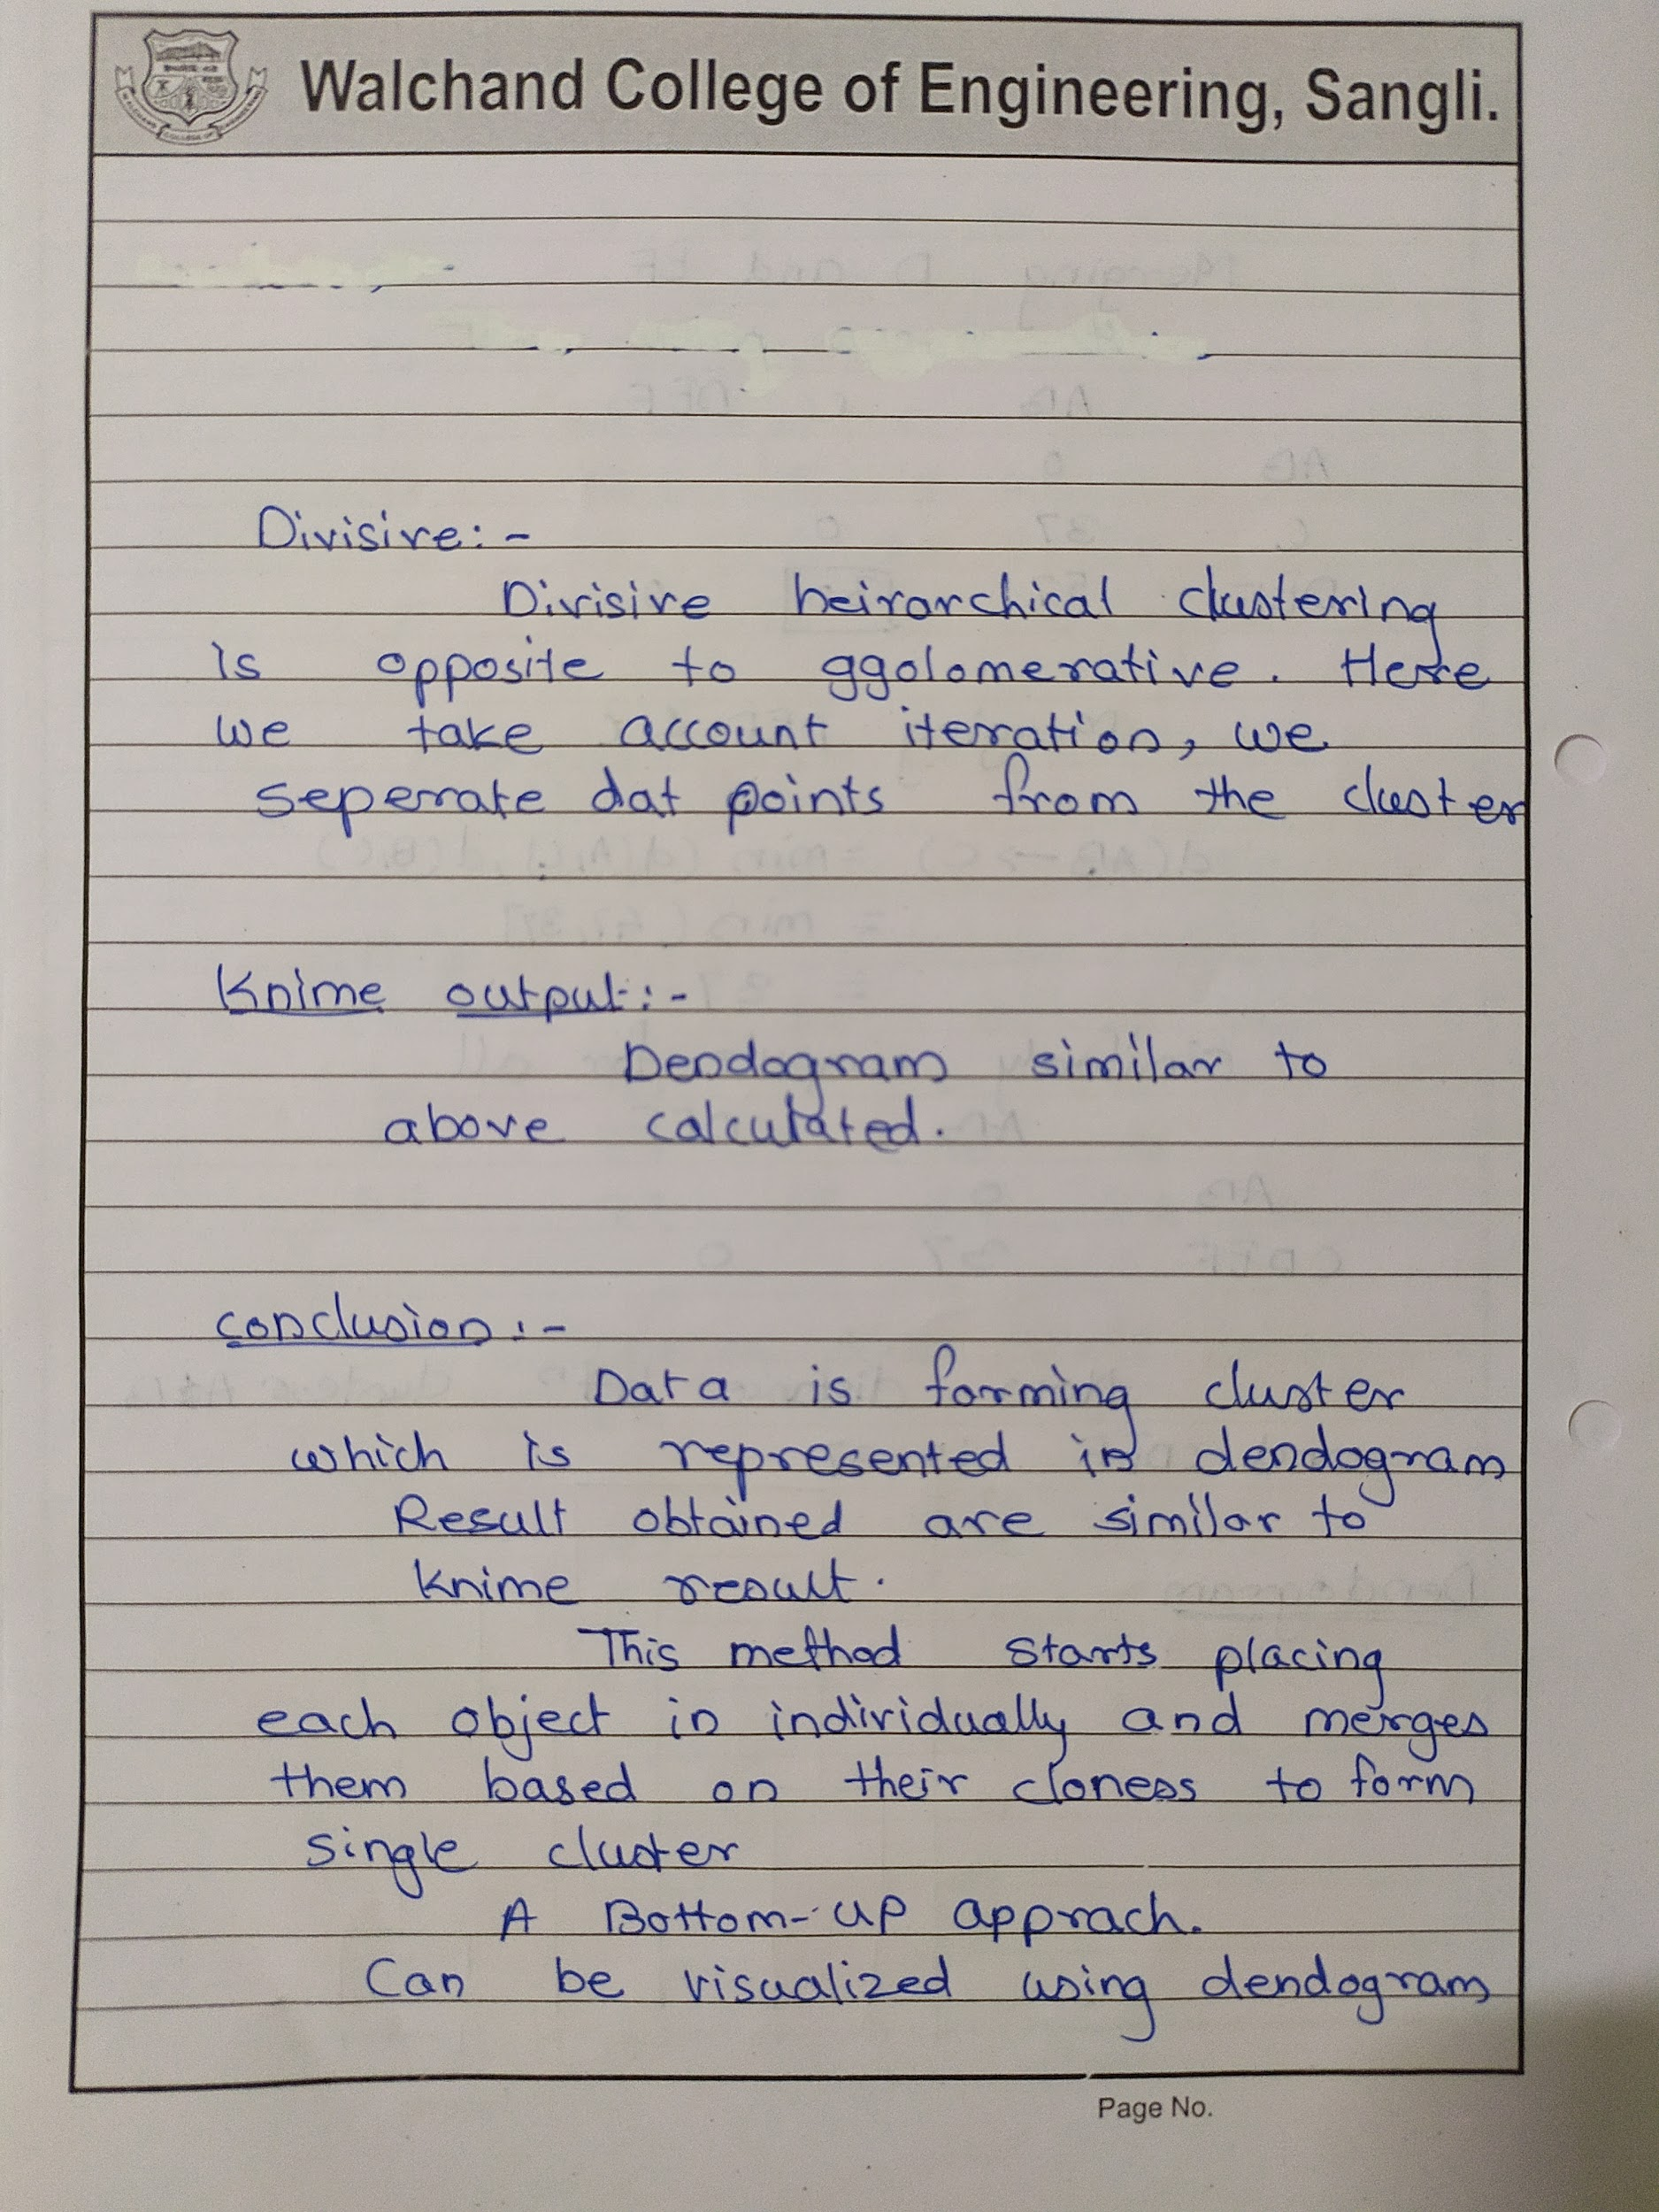 Walchand College of Engineering, Sangli.
Divisive:-
Divisive heirarchical clustering
is opposite to ggolomerative. Here
we take account iteration, we
seperate dat points from the cluster
Knime output:-
Dendogram similar to
above calculated.
conclusion:-
Data is forming cluster
which is represented in dendogram
Result obtained are similar to
Knime result.
This method starts placing
each object in individually and merges
them based on their cloness to form
single cluster
A Bottom-up apprach.
Can be visualized using dendogram
Page No.